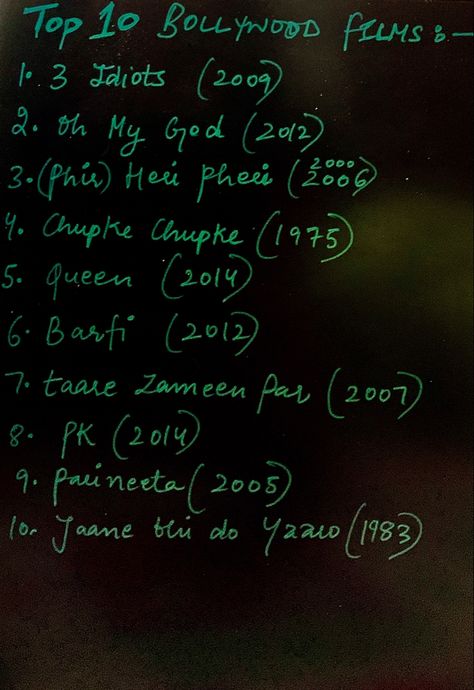 Top 10 BOLLYWOOD FILMS :-
1. 3 Idiots (2009)
2. Oh My God (2012)
2000
3. (Phir) Heri Pheri (2006)
4. Chupke Chupke (1975)
5. Queen (2014)
6. Barfi (2012)
7. taare Zameen Par (2007)
8. PK (2014)
9. Parineeta (2005)
10. Jaane bhi do Yaaro (1983)